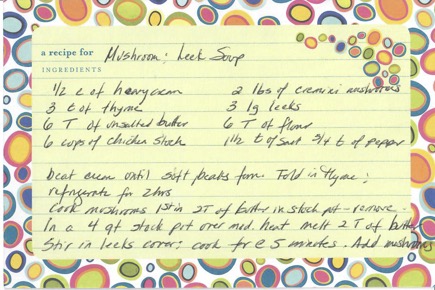 a recipe for Mushroom : Leek Soup
INGREDIENTS
1/2 c of heavy cream 2 lbs of cremini mushrooms
3 t of thyme 3 lg leeks
6 T of unsalted butter 6 T of flour
6 cups of chicken stock 1 1/2 t of salt 3/4 t of pepper
beat cream until soft peaks form. Fold in thyme :
refrigerate for 2 hrs
Cook mushrooms 1st in 2T of butter in stock pot - remove.
In a 4 qt stock pot over med. heat melt 2 T of butter
Stir in leeks cover : cook for @ 5 minutes. Add mushrooms